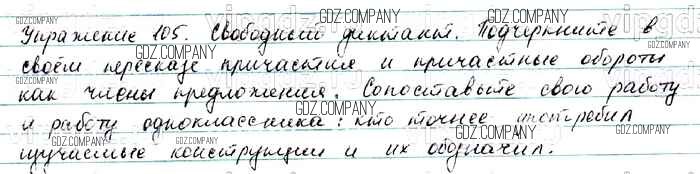 Упражнение 105. Свободный диктант. Подчеркните в
своём пересказе причастия и причастные обороты
как члены предложения. Сопоставьте свою работу
и работу одноклассника: кто точнее употребил
изучаемые конструкции и их обозначил.
GDZ.COMPANY